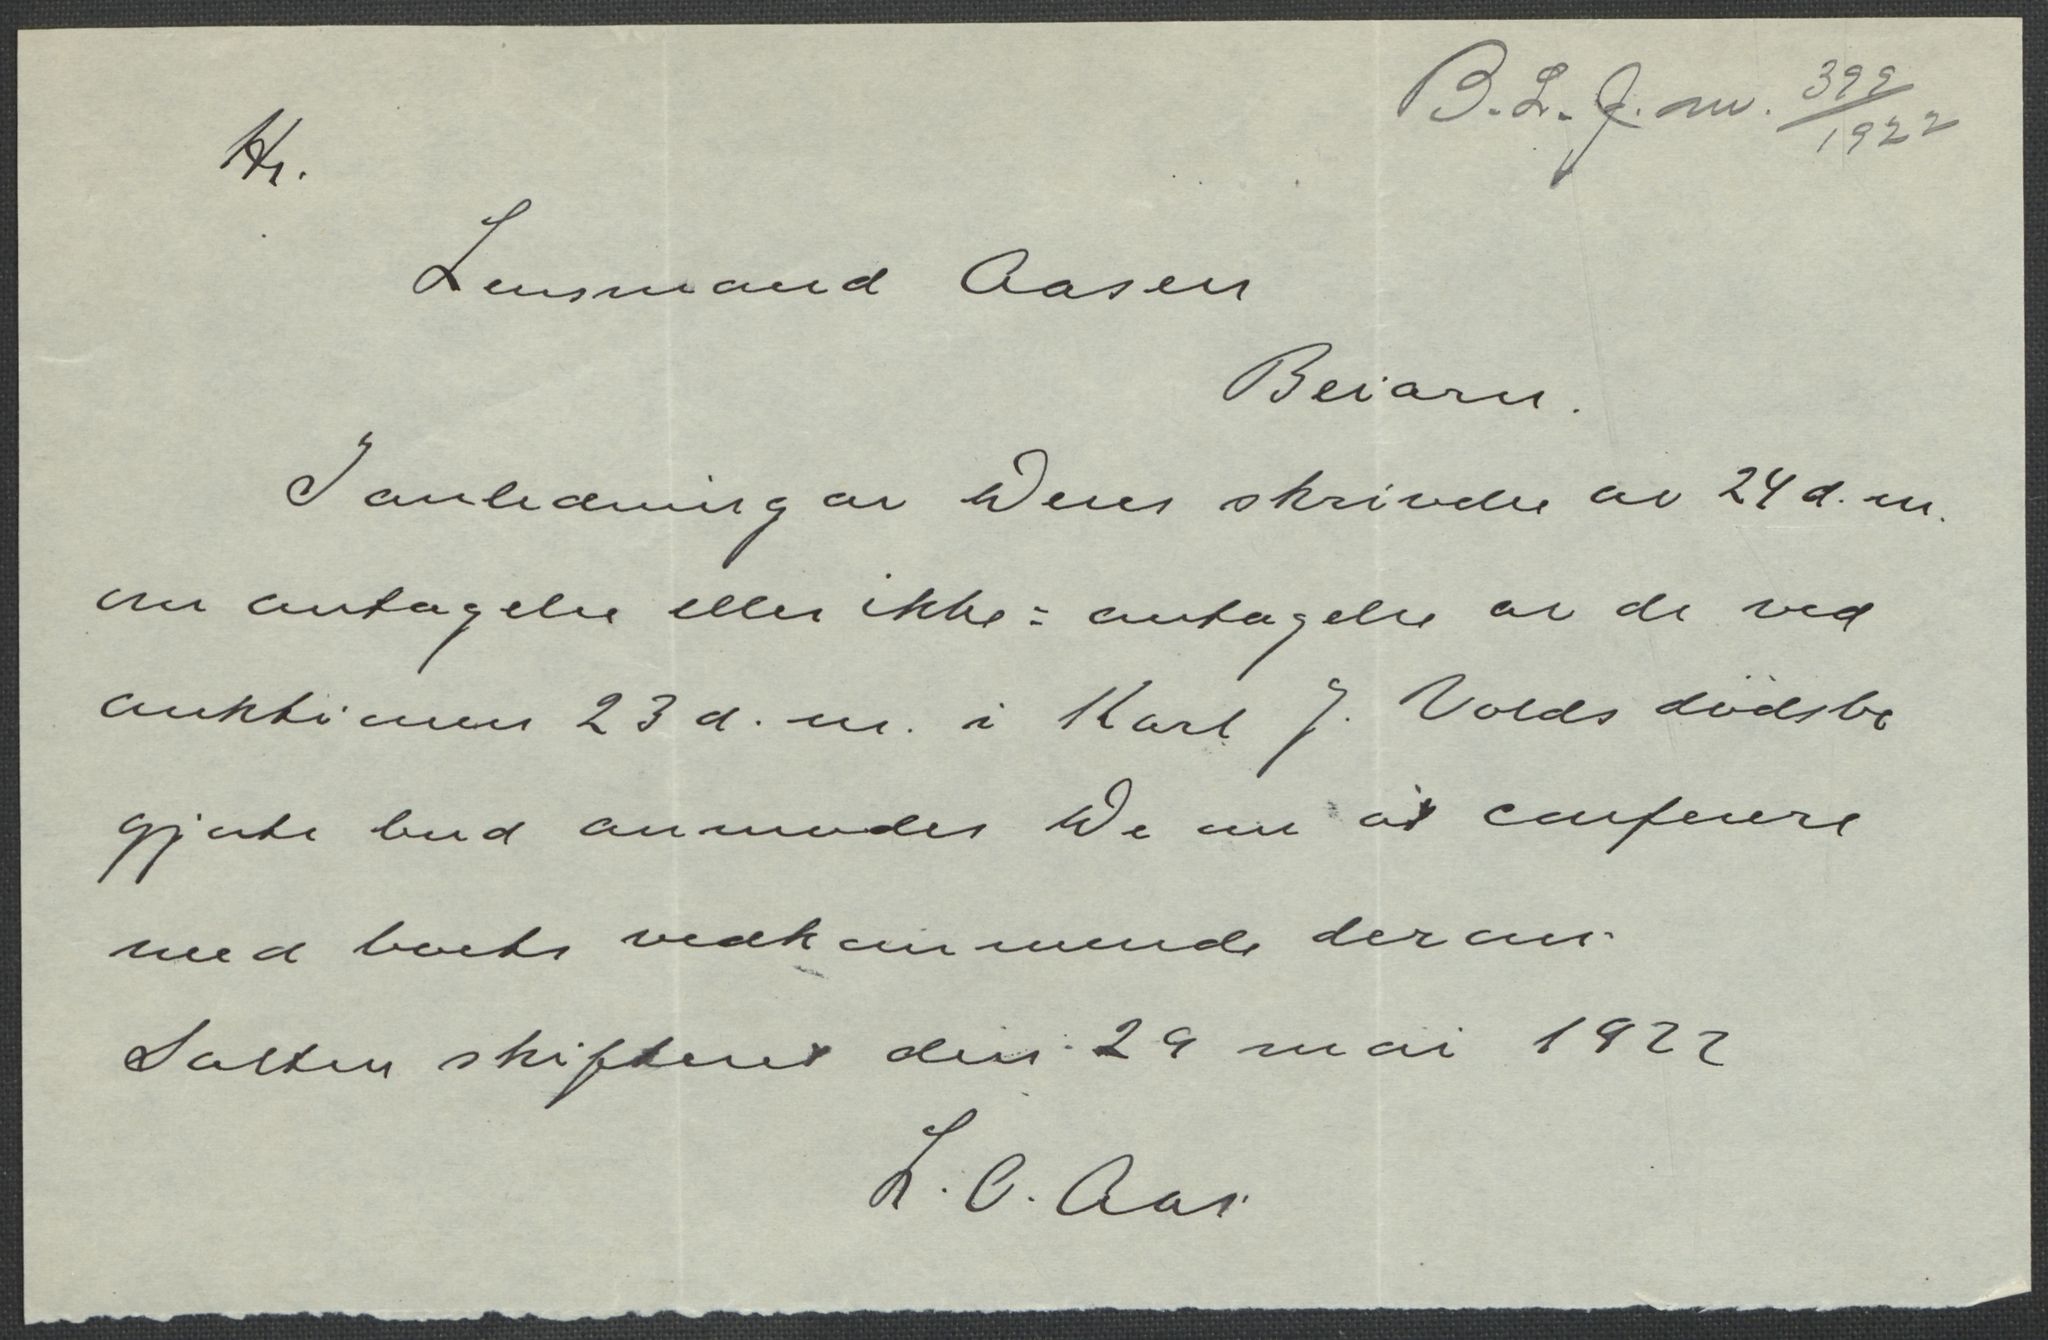 B.L.J.nr. 399/1922
Hr.
Lensmand Aasen
Beiarn.
I anledning av Deres skrivelse av 24 d.m.
om antagelse eller ikke=antagelse av de ved
auktionen 23 d.m. i Karl J. Volds dödsbo
gjorte bud anmodes De om at conferere
med boets vedkommende derom.
Salten skifteret den 29 mai 1922
L. C. Aas.